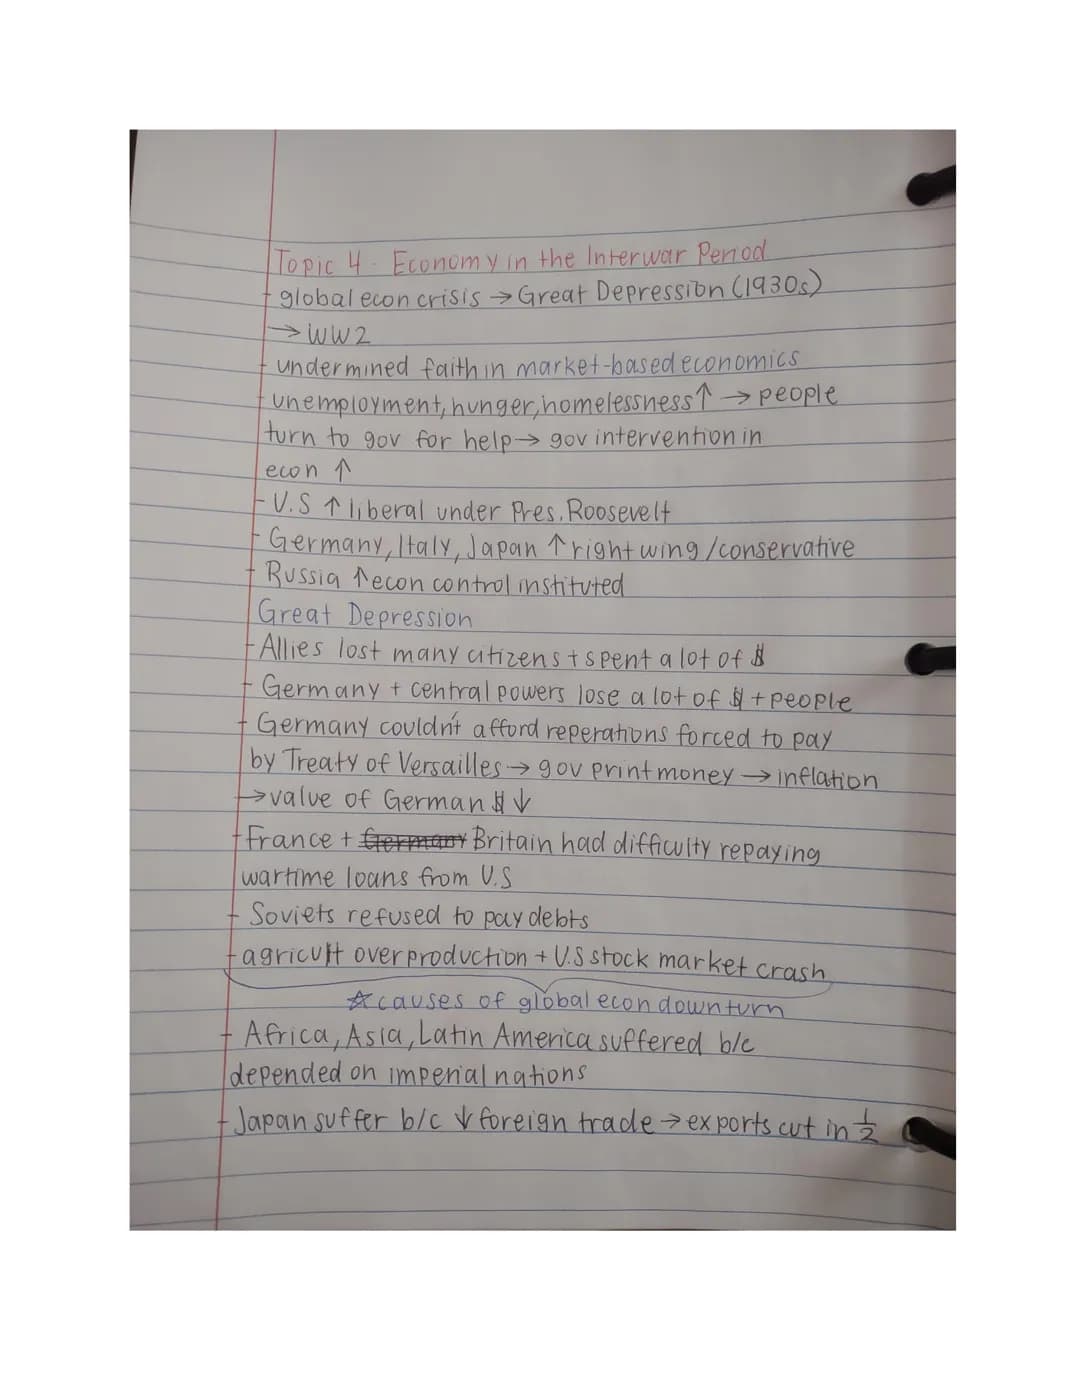 Topic 4 - Economy in the Interwar Period
- global econ crisis → Great Depression (1930s)
→ WW2
- undermined faith in market-based economics
- unemployment, hunger, homelessness ↑ → people
turn to gov for help → gov intervention in
econ ↑
- U.S ↑ liberal under Pres. Roosevelt
- Germany, Italy, Japan ↑ right wing/conservative
- Russia ↑ econ control instituted
Great Depression
- Allies lost many citizens + spent a lot of $
- Germany + central powers lose a lot of $ + people
- Germany couldn't afford reperations forced to pay
by Treaty of Versailles → gov print money → inflation
→ value of German $ ↓
- France + Germany Britain had difficulty repaying
wartime loans from U.S
- Soviets refused to pay debts
- agricult overproduction + U.S stock market crash
☆ causes of global econ downturn
- Africa, Asia, Latin America suffered b/c
depended on imperial nations
- Japan suffer b/c ↓ foreign trade → exports cut in 1/2